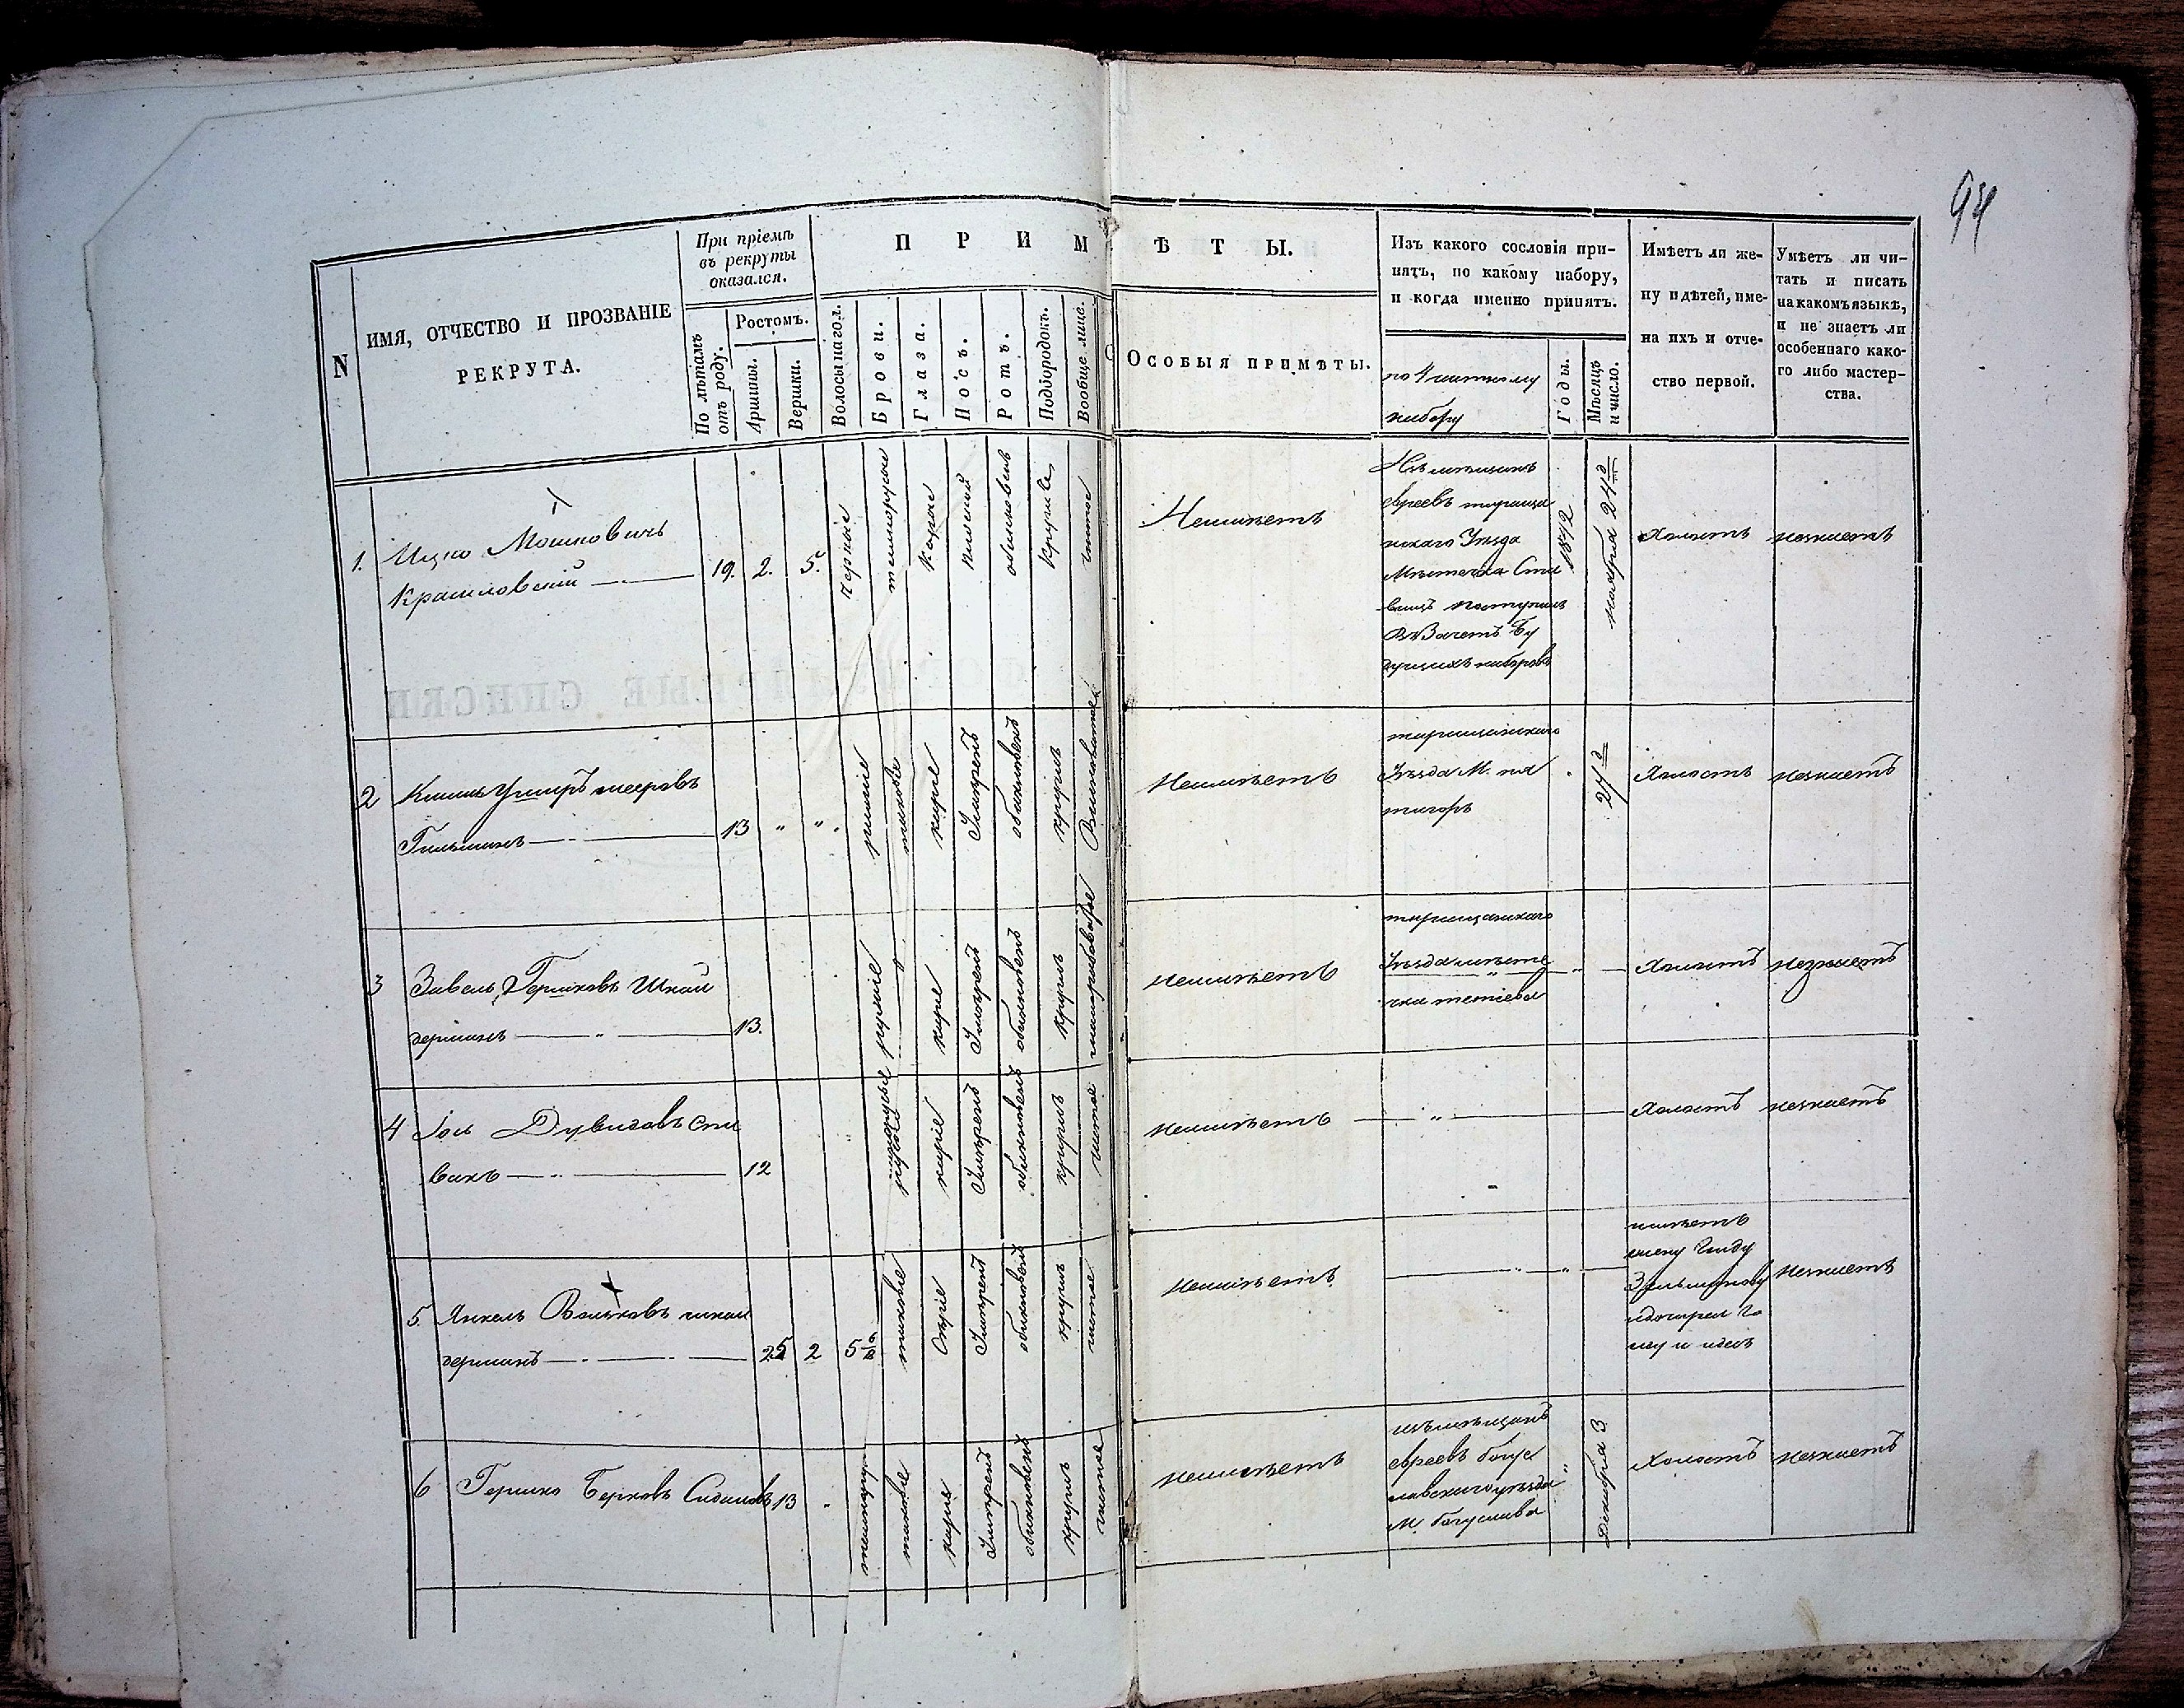 94
N
ИМЯ, ОТЧЕСТВО И ПРОЗВАНІЕ
РЕКРУТА.
При пріемѣ
въ рекруты
оказался.
По лѣтамъ
отъ роду.
Ростомъ.
Аршины.
Вершки.
П Р И М Ѣ Т Ы.
Волосы на гол.
Брови.
Глаза.
Носъ.
Ротъ.
Подбородокъ.
Вообще лице.
Особыя примѣты.
Изъ какого сословія при-
нятъ, по какому набору,
и когда именно принятъ.
набору
Годы.
Мѣсяцъ
и число.
Имѣетъ ли же-
ну и дѣтей, име-
на ихъ и отче-
ство первой.
Умѣетъ ли чи-
тать и писать
на какомъ языкѣ,
и не знаетъ ли
особеннаго како-
го либо мастер-
ства.
1.
Ицко Мошковичъ
Красиловскій
19.
2.
5.
черные
темнорусые
каріе
обыкновен
кругл
чистое
Неимѣетъ
Изъ мѣщанъ
евреевъ тараща
нскаго Уѣзда
Мѣстечка Ста
вищъ поступилъ
въ Зачетъ бу
дущихъ наборовъ
1842
ноября 24
Холостъ
незнаетъ
2
Гильманъ
13
"
"
каріе
Умѣрен
обыкновен
круглъ
Неимѣетъ
таращанскаго
Уѣзда М. пя
тигоръ
24
Холостъ
незнаетъ
3
Завель Гершковъ Шнай
дерманъ
13.
русые
каріе
Умѣрен
обыкновен
круглъ
неимѣетъ
таращанскаго
Уѣзда мѣсте
чка тетіева
Холостъ
незнаетъ
4
Іось Дувидовъ Спи
вакъ
12
русые
каріе
Умѣрен
обыкновен
круглъ
чистое
неимѣетъ
"
Холостъ
незнаетъ
5.
Янкель Вольковъ шнай
дерманъ
25
2
5
таковые
Умѣрен
обыкновен
круглъ
чистое
неимѣетъ
"
имѣетъ
жену
незнаетъ
6
Гершко Берковъ
13
таковые
каріе
Умѣрен
обыкновен
круглъ
чистое
неимѣетъ
изъ мѣщанъ
евреевъ богу
славскаго уѣзда
М. богуслава
"
Декабря 3
Холостъ
незнаетъ